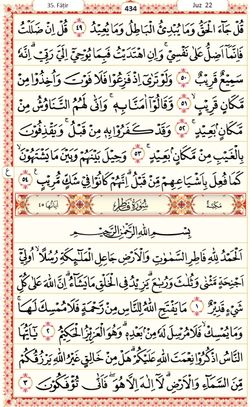 35. Fāṭir
434
Juz 22
قُلْ جَآءَ الْحَقُّ وَمَا يُبْدِئُ الْبَاطِلُ وَمَا يُعِيْدُ ۝٤٩ قُلْ اِنْ ضَلَلْتُ
فَاِنَّمَآ اَضِلُّ عَلٰى نَفْسِيْ ۚ وَاِنِ اهْتَدَيْتُ فَبِمَا يُوْحِيْٓ اِلَيَّ رَبِّيْ ۗ اِنَّهٗ
سَمِيْعٌ قَرِيْبٌ ۝٥٠ وَلَوْ تَرٰٓى اِذْ فَزِعُوْا فَلَا فَوْتَ وَاُخِذُوْا مِنْ
مَّكَانٍ قَرِيْبٍ ۝٥١ وَّقَالُوْٓا اٰمَنَّا بِهٖ ۚ وَاَنّٰى لَهُمُ التَّنَاوُشُ مِنْ
مَّكَانٍۭ بَعِيْدٍ ۝٥٢ وَّقَدْ كَفَرُوْا بِهٖ مِنْ قَبْلُ ۚ وَيَقْذِفُوْنَ
بِالْغَيْبِ مِنْ مَّكَانٍۭ بَعِيْدٍ ۝٥٣ وَحِيْلَ بَيْنَهُمْ وَبَيْنَ مَا يَشْتَهُوْنَ
كَمَا فُعِلَ بِاَشْيَاعِهِمْ مِّنْ قَبْلُ ۗ اِنَّهُمْ كَانُوْا فِيْ شَكٍّ مُّرِيْبٍ ۝٥٤
مَكِّيَّةٌ سُوْرَةُ فَاطِرٍ اٰيَاتُهَا ٤٥
بِسْمِ اللّٰهِ الرَّحْمٰنِ الرَّحِيْمِ
اَلْحَمْدُ لِلّٰهِ فَاطِرِ السَّمٰوٰتِ وَالْاَرْضِ جَاعِلِ الْمَلٰٓئِكَةِ رُسُلًا اُولِيْٓ
اَجْنِحَةٍ مَّثْنٰى وَثُلٰثَ وَرُبٰعَ ۗ يَزِيْدُ فِى الْخَلْقِ مَا يَشَآءُ ۗ اِنَّ اللّٰهَ عَلٰى كُلِّ
شَيْءٍ قَدِيْرٌ ۝١ مَا يَفْتَحِ اللّٰهُ لِلنَّاسِ مِنْ رَّحْمَةٍ فَلَا مُمْسِكَ لَهَا ۚ
وَمَا يُمْسِكْ فَلَا مُرْسِلَ لَهٗ مِنْۢ بَعْدِهٖ ۗ وَهُوَ الْعَزِيْزُ الْحَكِيْمُ ۝٢ يٰٓاَيُّهَا
النَّاسُ اذْكُرُوْا نِعْمَتَ اللّٰهِ عَلَيْكُمْ ۗ هَلْ مِنْ خَالِقٍ غَيْرُ اللّٰهِ يَرْزُقُكُمْ
مِّنَ السَّمَآءِ وَالْاَرْضِ ۗ لَآ اِلٰهَ اِلَّا هُوَ ۖ فَاَنّٰى تُؤْفَكُوْنَ ۝٣